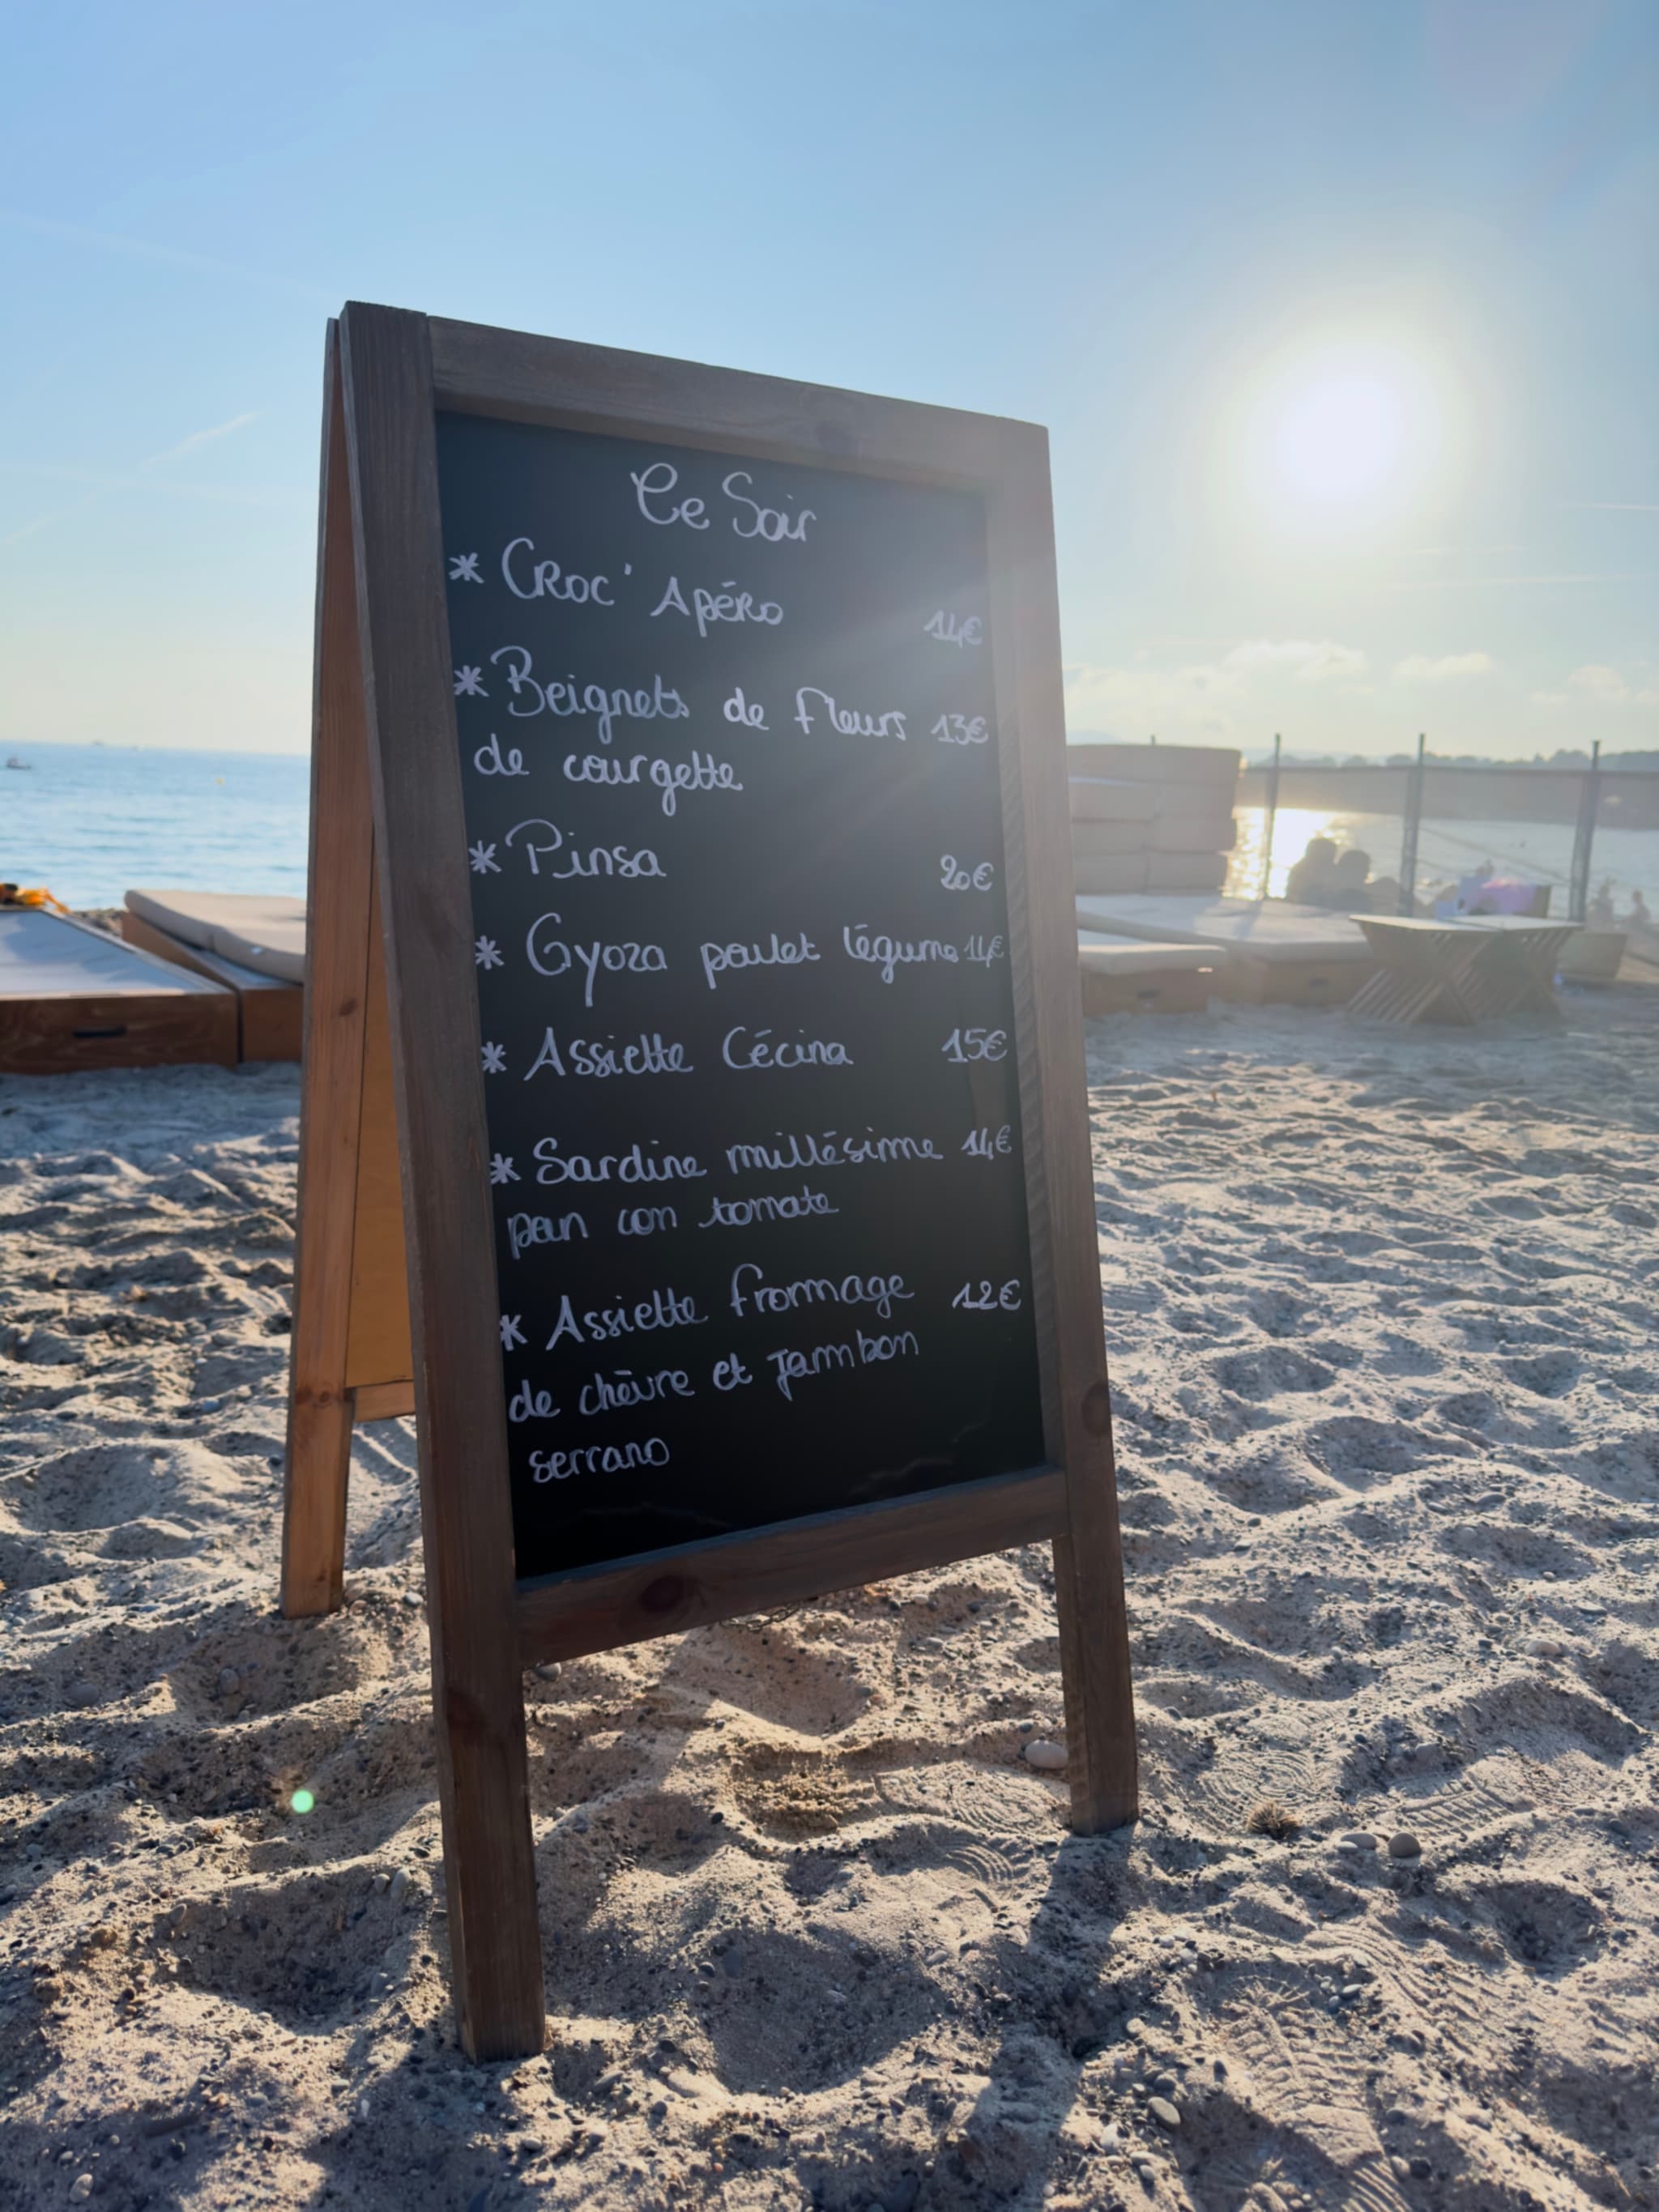 Ce Soir
* CROC' APÉRO 14€
* Beignets de fleurs 13€
de courgette
* Pinsa 20€
* Gyoza poulet légume 14€
* Assiette Cécina 15€
* Sardine millésime 14€
pan con tomate
* Assiette fromage 12€
de chèvre et Jambon
serrano